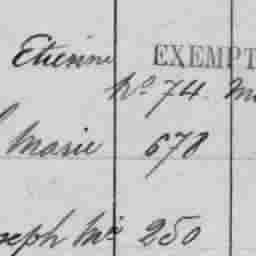 Etienne EXEMPT
No. 74. M
Marie 678
seph Mie 250